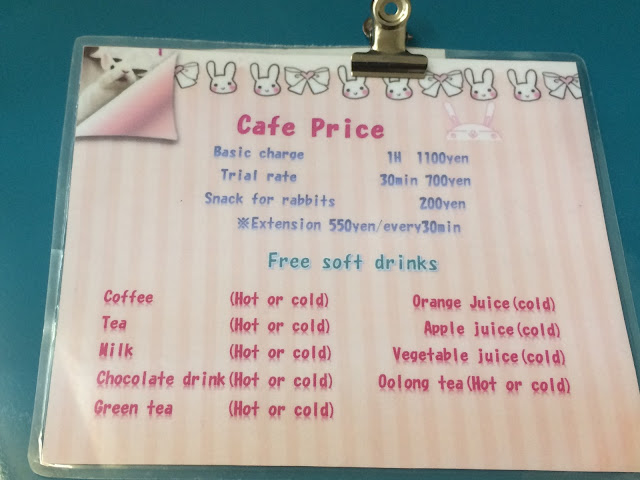 Cafe Price
Basic charge 1H 1100yen
Trial rate 30min 700yen
Snack for rabbits 200yen
※Extension 550yen/every30min
Free soft drinks
Coffee (Hot or cold) Orange Juice(cold)
Tea (Hot or cold) Apple juice(cold)
Milk (Hot or cold) Vegetable juice(cold)
Chocolate drink(Hot or cold) Oolong tea(Hot or cold)
Green tea (Hot or cold)